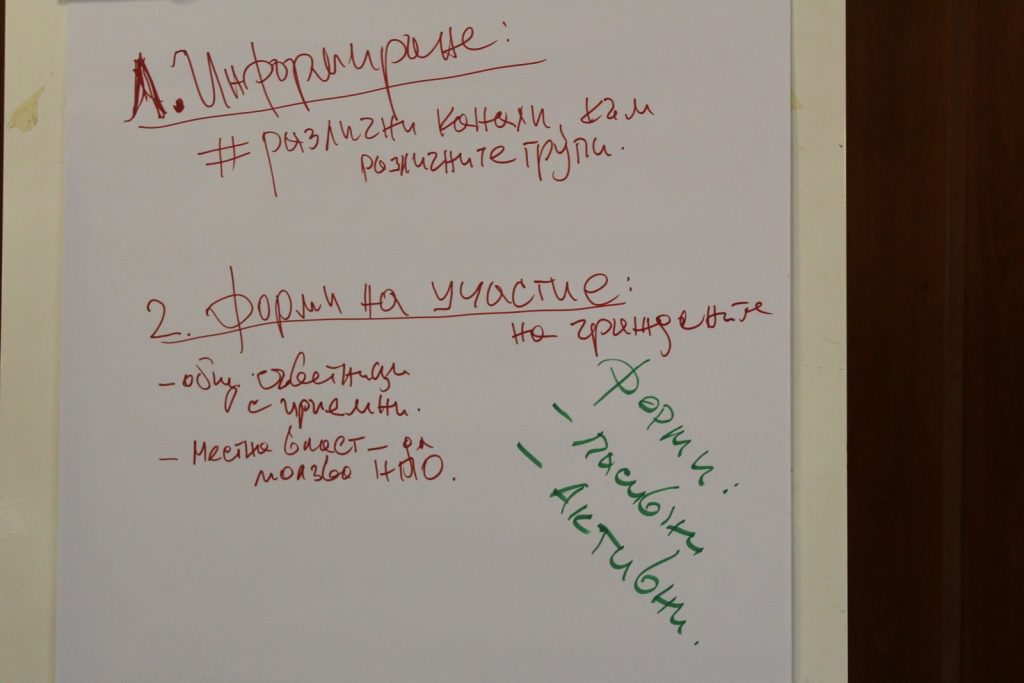 1. Информиране:
# различни канали, към
различните групи.
2. Форми на участие:
на гражданите
- общ. съветници
с приемни.
- Местна власт - да
ползва НПО.
Форми:
- Пасивни
- Активни.